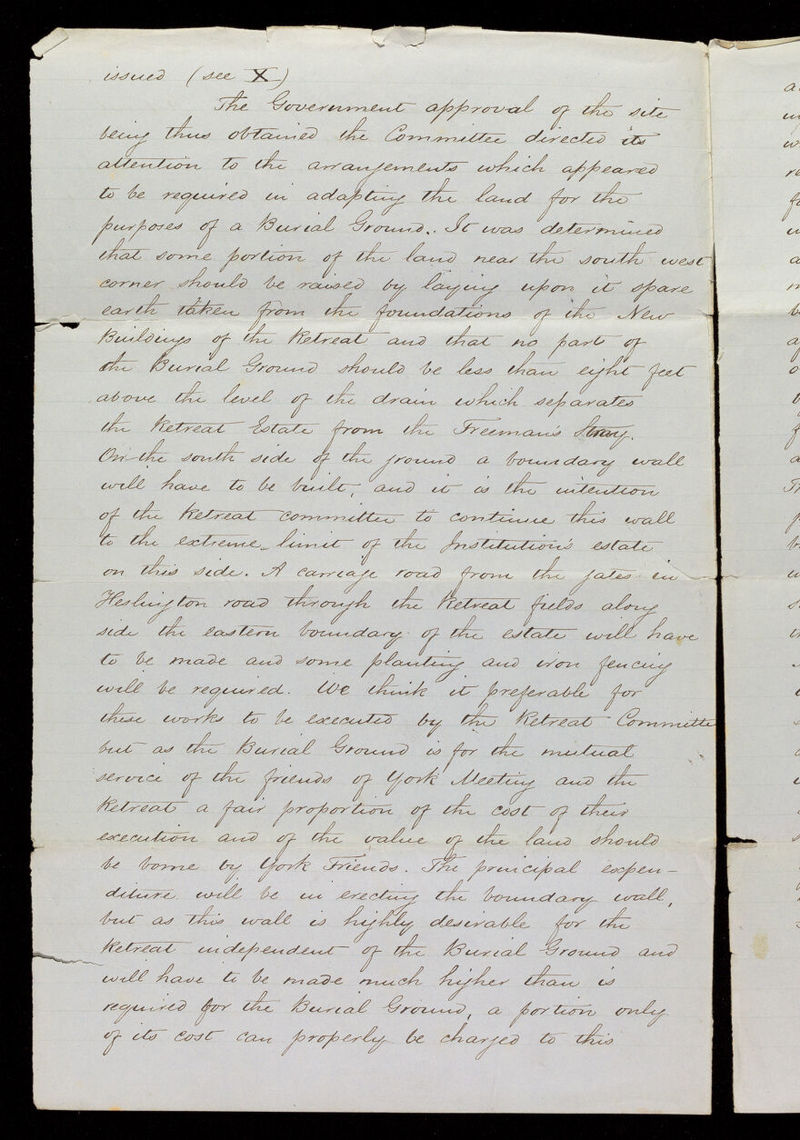 issued (see X)
The Government approval of the site
being thus obtained the Committee directed its
attention to the arrangements which appeared
to be required in adapting the land for the
purposes of a Burial Ground. It was determined
that some portion of the land near the south west
corner should be raised by laying upon it spare
earth taken from the foundations of the New
Buildings of the Retreat and that no part of
the Burial Ground should be less than eight feet
above the level of the drain which separates
the Retreat Estate from the Freeman's Stray.
On the south side of the ground a boundary wall
will have to be built, and it is the intention
of the Retreat committee to continue this wall
to the extreme limit of the Institution's estate
on this side. A carriage road from the gates in
Heslington road through the Retreat fields along
side the eastern boundary of the estate will have
to be made and some planting and iron fencing
will be required. We think it preferable for
these works to be executed by the Retreat Committee
but as the Burial Ground is for the mutual
service of the friends of York Meeting and the
Retreat a fair proportion of the cost of their
execution and of the value of the land should
be borne by York Friends. The principal expen-
diture will be in erecting the boundary wall,
but as this wall is highly desirable for the
Retreat independent of the Burial Ground and
will have to be made much higher than is
required for the Burial Ground, a portion only
of its cost can properly be charged to this